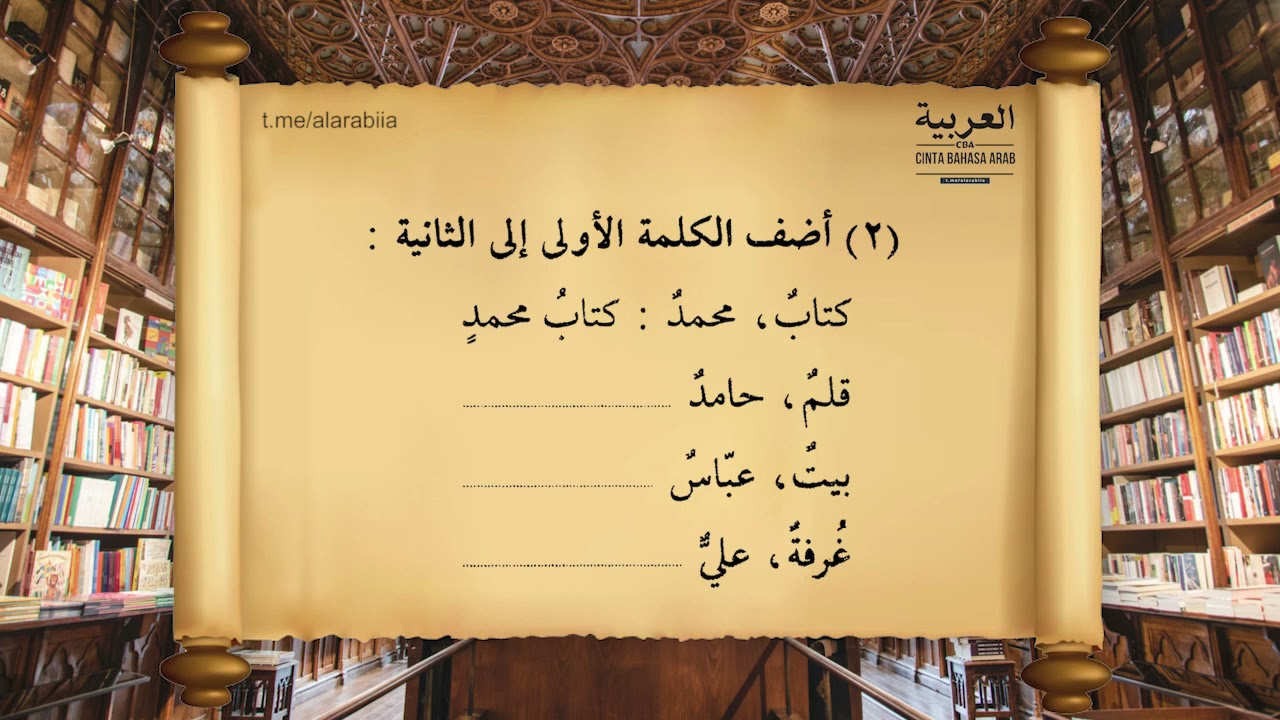 t.me/alarabiia
العربية
CBA
CINTA BAHASA ARAB
t.me/alarabiia
(٢) أضف الكلمة الأولى إلى الثانية :
كتابٌ، محمدٌ : كتابُ محمدٍ
قلمٌ، حامدٌ ..............................
بيتٌ، عبّاسٌ ..............................
غُرفةٌ، عليٌّ ..............................